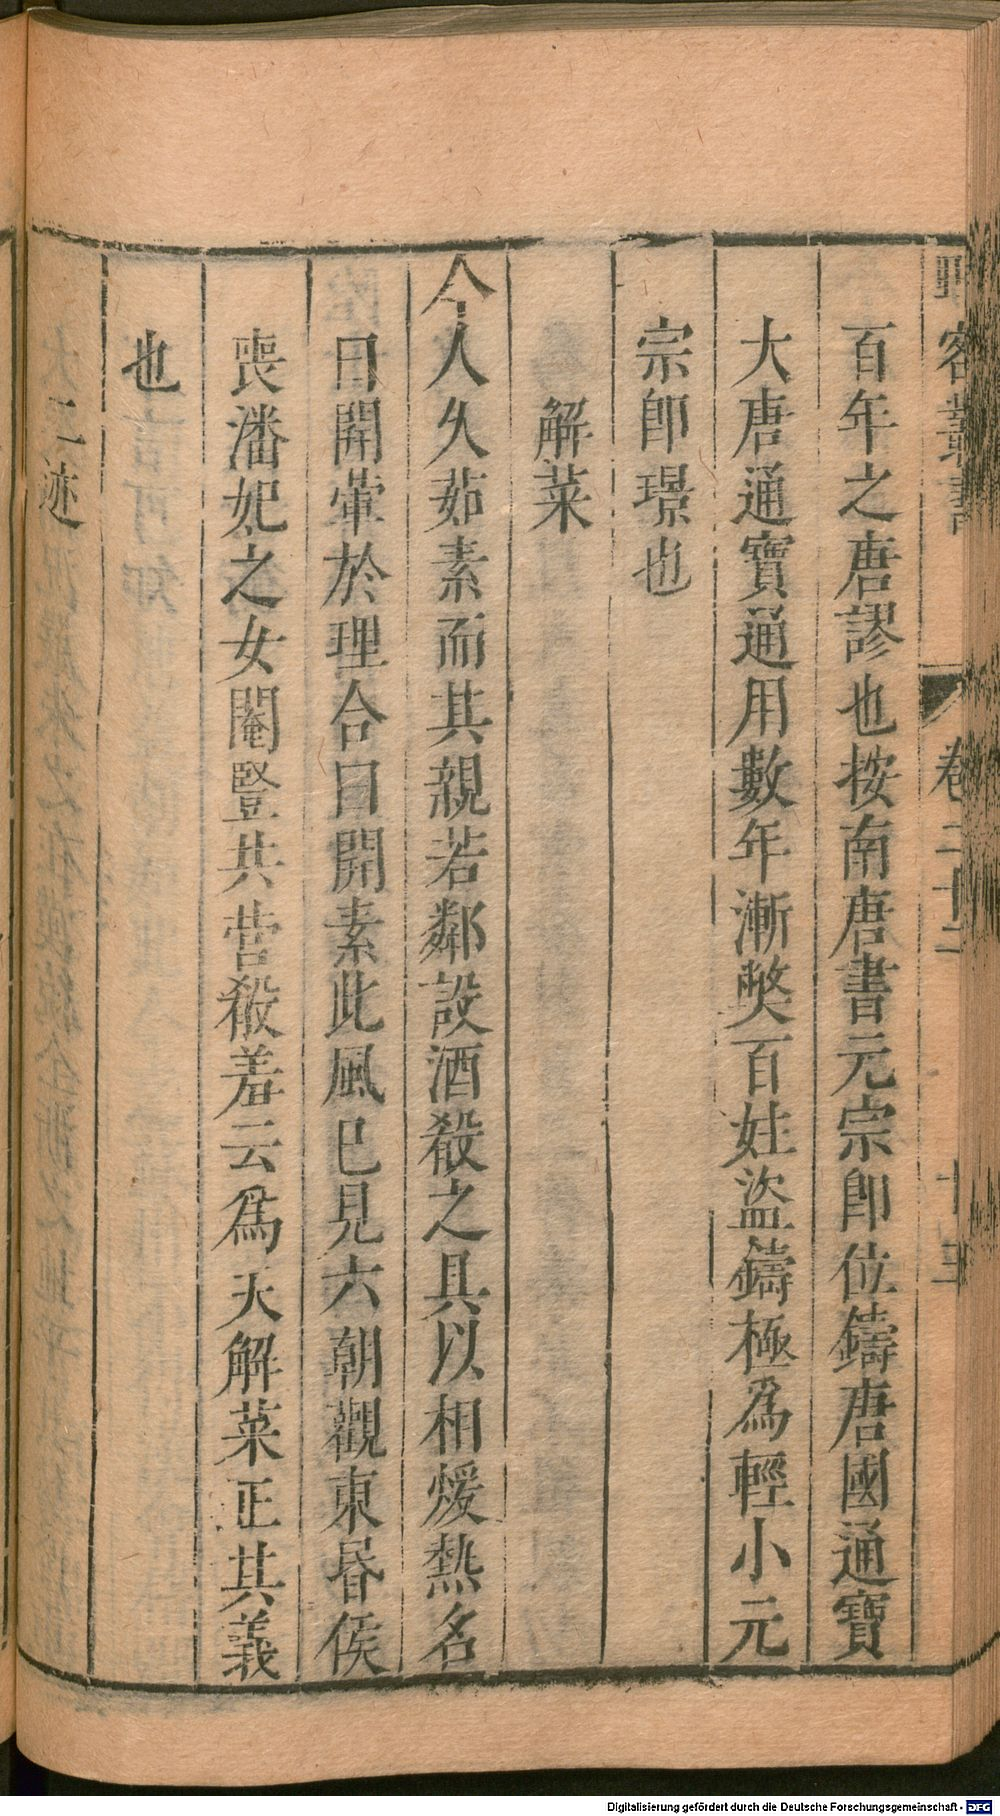 野客叢書 卷二十二 十三
百年之唐謬也按南唐書元宗卽位鑄唐國通寶
大唐通寶通用數年漸獘百姓盜鑄極爲輕小元
宗卽璟也
解菜
今人久茹素而其親若鄰設酒殽之具以相煖熱名
曰開葷於理合曰開素此風已見六朝觀東昏侯
喪潘妃之女闍豎共營殽羞云爲天解菜正其義
也
二迹
Digitalisierung gefördert durch die Deutsche Forschungsgemeinschaft - DFG